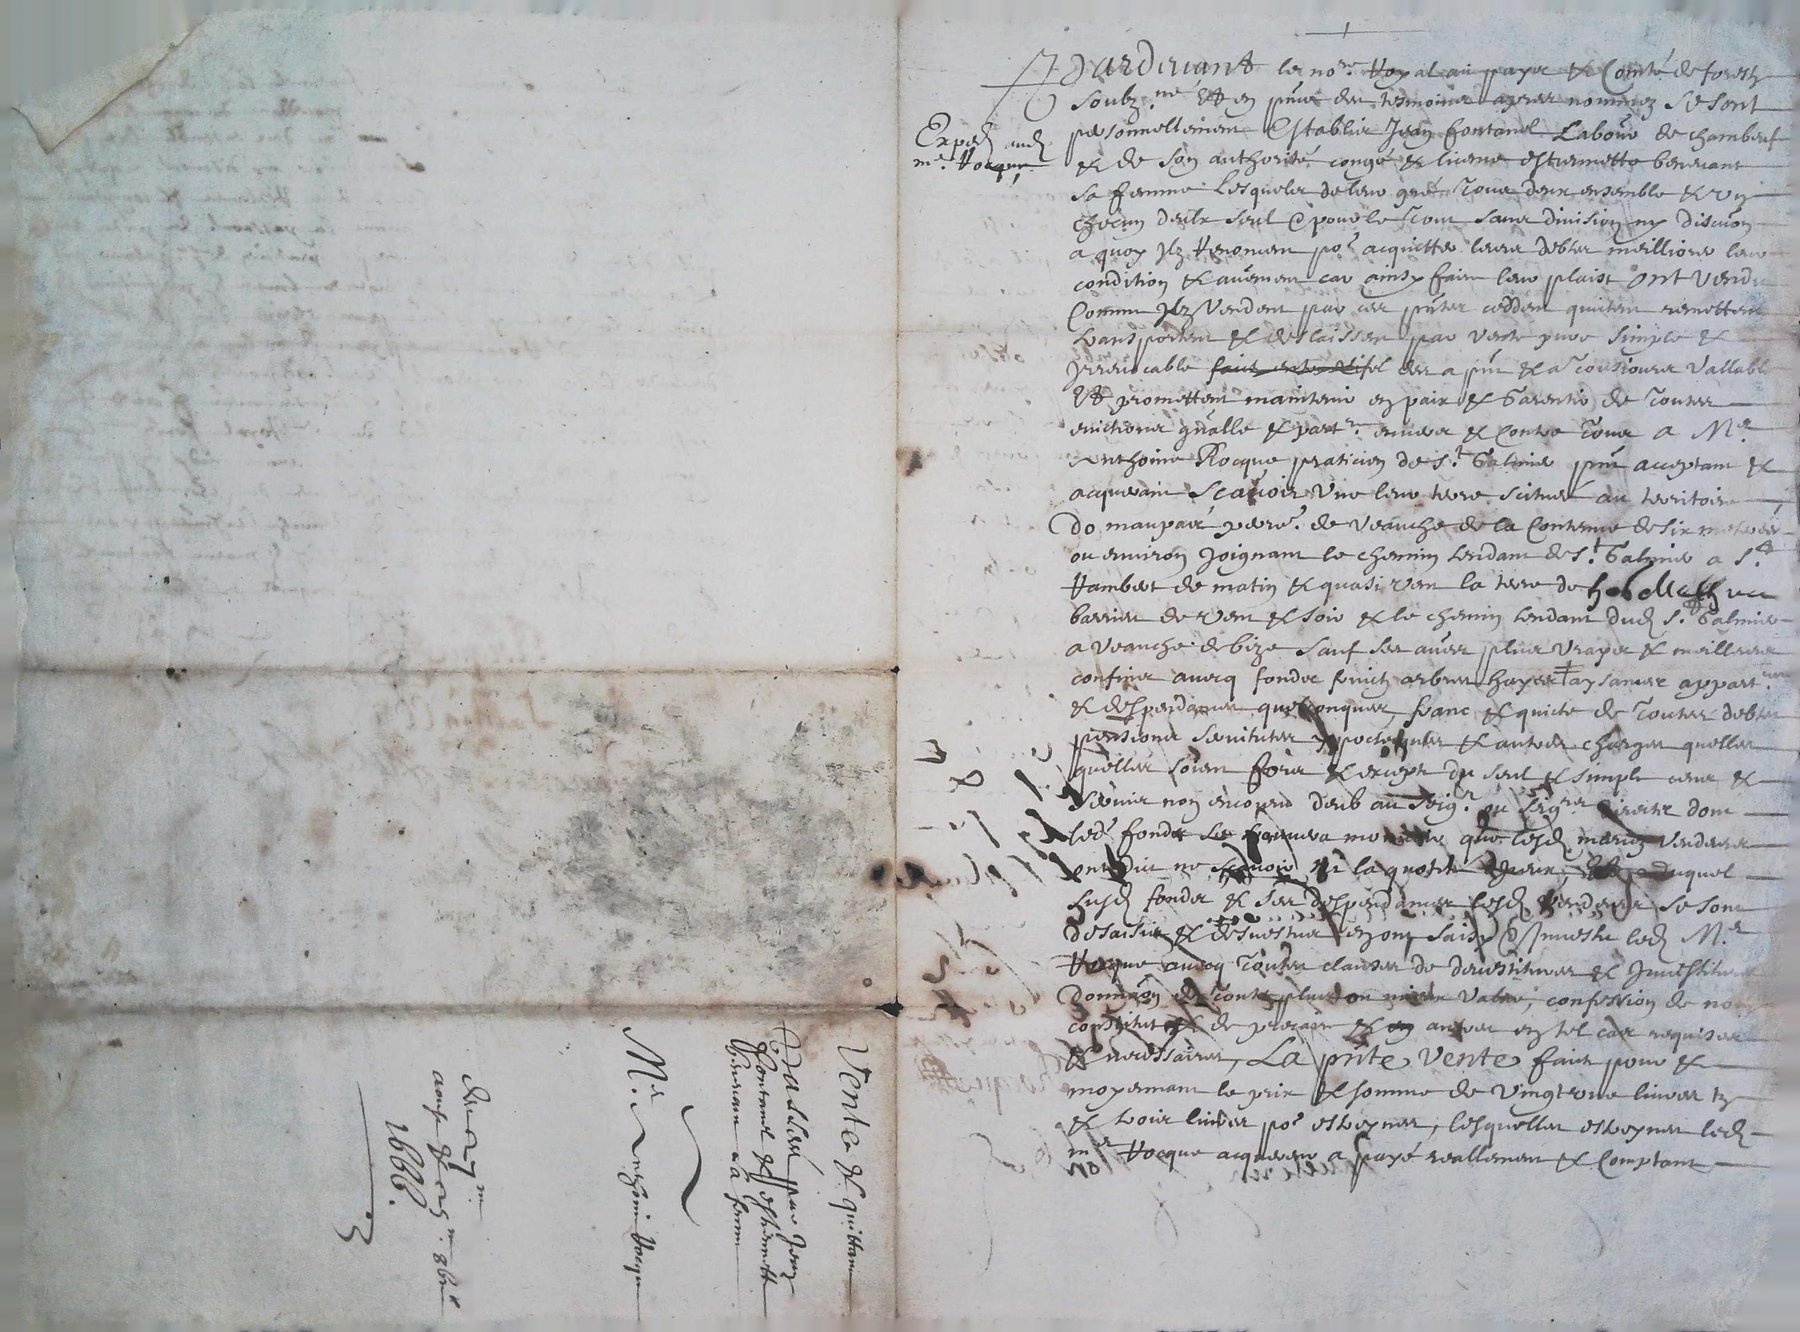 Pardevant le no.re Royal au payx & Comté de forestz
soubz.né Et en pñce des tesmoins apres nommez se sont
personnellement establis Jean fontanel Laboũr de chambeuf
& de son authorité congé & licence estiennette benevant
sa femme Lesquels de leur gré Tous deux ensemble & un
checun deulx seul & pour le Tout sans division ny discũon
a quoy Ilz Renoncent po.r acquitter leurs debtes meilliorer leur
condition & aũement car ainsy faire leur plaist ont vendu
Comme Ilz Vendent par ces pñtes ceddent quittent remettent
transportent & deslaissent par vente pure simple &
Irrevocable des a pñt & a Tousiours Vallable
Et promettent maintenir en paix & Garentir de Toutes
evictions gñalle & part.re envers & Contre Tous a M.e
Anthoine Rocque praticien de S.t Galmier pñt acceptant &
acquerant Scavoir Une leur terre scituée au territoire
Do maupair parr.e de Veauche de la Contenue de six metterées
ou environ Joignant le chemin tendant de S.t Galmier a S.t
Rambert de matin & quasi vent la terre de hos Matthieu
barrieu de vent & soir & le chemin tendant dud. S.t Galmier
a Veauche de bize sauf ses aũes plus vrayes & meilleures
confins avecq fondz fruictz arbres hayes aysances appart.ces
& despendances quelconques franc & quicte de Toutes debtes
pensions servitutes ypotecques & autres charges quelles
quelles soient fors & excepté du seul & simple cens &
servis non encouru deub au Seig.r ou Seig.rs directz dont
led. fondz se trouvera mouvoir que lesd. mariez vendeurs
ont dict ne scavoir ni la quotité duquel
susd. fondz & ses despendances lesd. vendeurs se sont
desaisis & desvestus en ont saisy & Invesu led. M.e
Rocque avecq Toutes clauses de devestitures & Investitures
Donnaõn de Toute plus ou mieux value, confession de nom
constitut & de precaire & en autres en tel cas requises
& necessaires, La pñte Vente faicte pour &
moyennant le prix & somme de Vingt une livres tz
& trois livres po.r estreynes, lesquelles estreynes led.
m.e Rocque acquereur a payé reallement & Comptant
Exped. aud.
m.e Rocque
Vente & quittance
Passée par Jean
fontanel & estiennette
benevant sa femme
A
M.e Anthoine Rocque
1666.